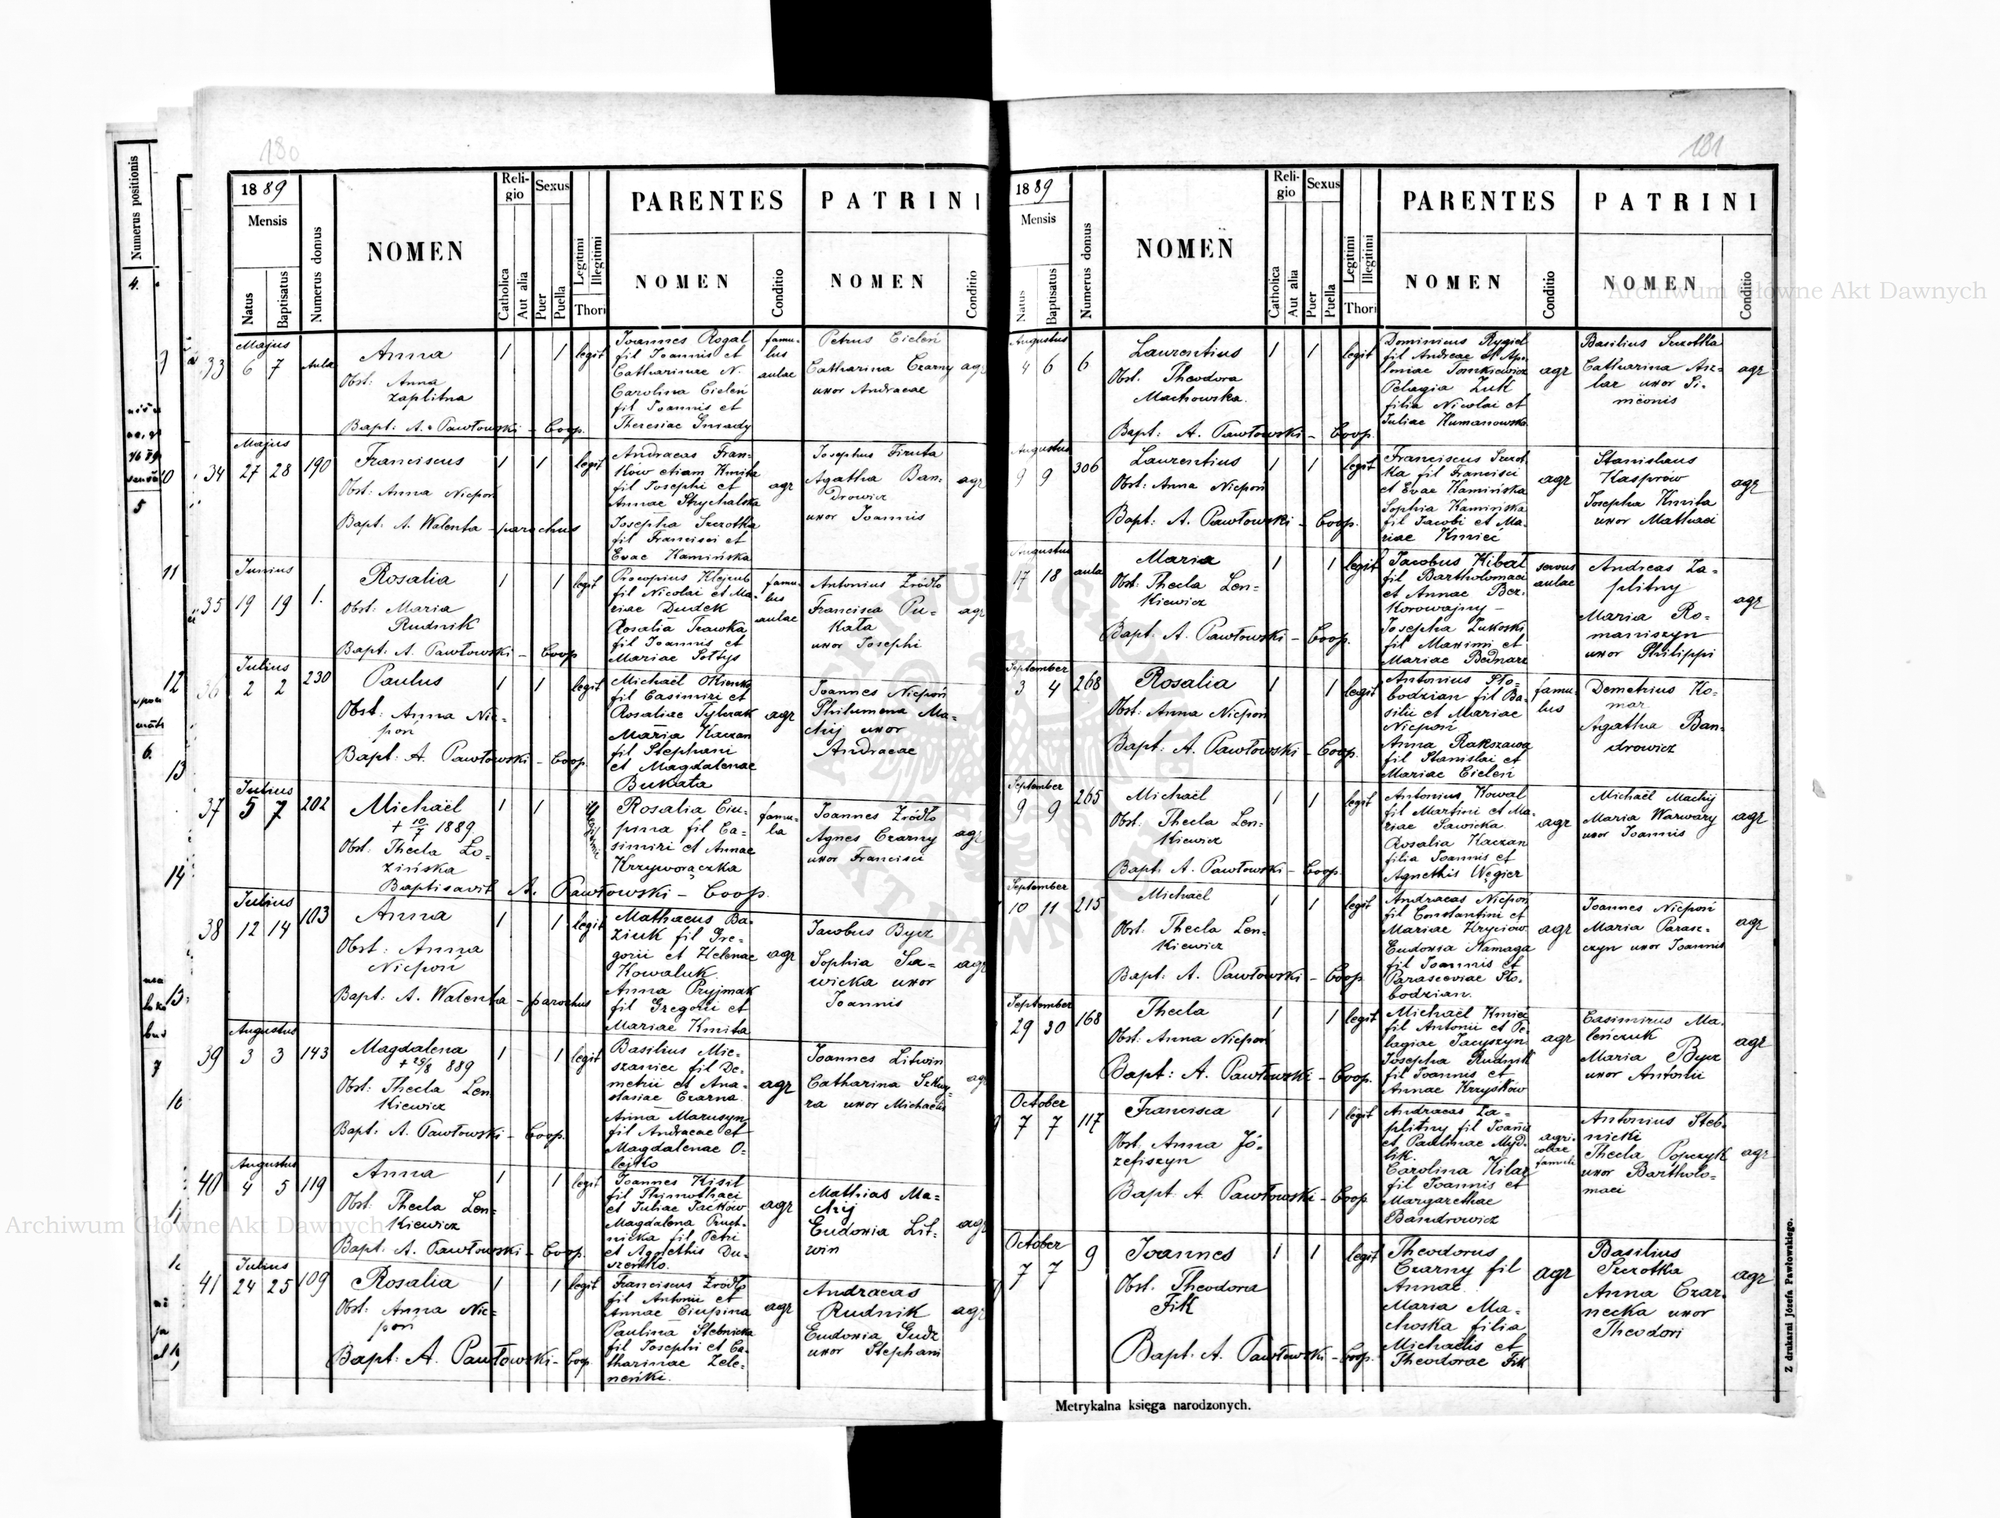 180
1889
Mensis
Natus
Baptisatus
Numerus domus
NOMEN
Reli-
gio
Catholica
Aut alia
Sexus
Puer
Puella
Legitimi
Illegitimi
Thori
PARENTES
NOMEN
Conditio
PATRINI
NOMEN
Conditio
Numerus positionis
33
Majus
6 7 Aula
Anna
Obst: Anna
Zaplitna
Bapt: A. Pawłowski - Coop.
1 1 legit
Joannes Rogal
fil Joannis et
Catharinae N.
Carolina Cieleń
fil Joannis et
Theresiae Gnsady
famu-
lus
aulae
Petrus Cieleń
Catharina Czarny
uxor Andreae
agr
34
Majus
27 28 190
Franciscus
Obst: Anna Niepoń
Bapt: A. Walenta - parochus
1 1 legit
Andraeas Fran-
ków etiam Kmita
fil Josephi et
Annae Strychalska
Josepha Szrotka
fil Francisci et
Evae Kamińska
agr
Josephus Firuta
Agatha Ban-
drowicz
uxor Joannis
agr
35
Junius
19 19 1.
Rosalia
Obst: Maria
Rudnik
Bapt: A. Pawłowski - Coop
1 1 legit
Procopius Klejcub
fil Nicolai et Ma-
riae Dudek
Rosalia Trawka
fil Joannis et
Mariae Sołtys
famu-
lus
aulae
Antonius Źródło
Francisca Pu-
kała
uxor Josephi
agr
36
Julius
2 2 230
Paulus
Obst: Anna Nie-
poń
Bapt: A. Pawłowski - Coop.
1 1 legit
Michael Okienko
fil Casimiri et
Rosaliae Tylczak
Maria Kaczan
fil Stephani
et Magdalenae
Bukata
agr
Joannes Niepoń
Philumena Ma-
chij uxor
Andraeae
37
Julius
5 7 202
Michaël
+ 10/7 1889
Obst: Thecla Ło-
zińska
Baptisavit A. Pawłowski - Coop.
1 1
Rosalia Ciu-
pina fil Ca-
simiri et Annae
Krzyworączka
famu-
la
Joannes Źródło
Agnes Czarny
uxor Francisci
agr
38
Julius
12 14 103
Anna
Obst: Anna
Niepoń
Bapt: A. Walenta - parochus
1 1 legit
Mathaeus Ba-
ziuk fil Gre-
gorii et Helenae
Kowaluk
Anna Pryjmak
fil Gregorii et
Mariae Kmita
agr
Jacobus Bycz
Sophia Sa-
wicka uxor
Joannis
agr
39
Augustus
3 3 143
Magdalena
+ 28/8 889
Obst: Thecla Len
kiewicz
Bapt: A. Pawłowski - Coop.
1 1 legit
Basilius Mie-
szaniec fil De-
metrii et Ana-
stasiae Czarna
Anna Marusyn
fil Andraeae et
Magdalenae O-
lejko
agr
Joannes Litwin
Catharina Szkwy-
ra uxor Michaelis
agr
40
Augustus
4 5 119
Anna
Obst: Thecla Len-
kiewicz
Bapt: A. Pawłowski - Coop.
1 1 legit
Joannes Kisil
fil Thimothaei
et Juliae Jacków
Magdalena Pruch-
nicka fil Petri
et Agnethis Du-
szeńko.
agr
Mathias Ma-
chij
Eudoxia Lit-
win
agr
41
Julius
24 25 109
Rosalia
Obst: Anna Nie-
poń
Bapt: A. Pawłowski - Coop.
1 1 legit
Franciscus Źródło
fil Antonii et
Annae Ciupina
Paulina Stebnicka
fil Josephi et Ca-
tharinae Zele-
neńki.
agr
Andraeas
Rudnik
Eudoxia Gudz
uxor Stephani
agr
181
1889
Mensis
Natus
Baptisatus
Numerus domus
NOMEN
Reli-
gio
Catholica
Aut alia
Sexus
Puer
Puella
Legitimi
Illegitimi
Thori
PARENTES
NOMEN
Conditio
PATRINI
NOMEN
Conditio
Augustus
4 6 6
Laurentius
Obst. Theodora
Machowska.
Bapt: A. Pawłowski - Coop.
1 1 legit
Dominicus Rygiel
fil Andreae et Apo-
loniae Tomkiewicz
Pelagia Żuk
filia Nicolai et
Juliae Humanowska
agr
Basilius Szrotka
Catharina Asz-
lar uxor Si-
meonis
agr
Augustus
9 9 306
Laurentius
Obst: Anna Niepoń
Bapt: A. Pawłowski - Coop.
1 1 legit
Franciscus Szrot-
ka fil Francisci
et Evae Kamińska
Sophia Kamińska
fil Jacobi et Ma-
riae Kmieć
agr
Stanislaus
Kasprów
Josepha Kmita
uxor Mathaei
agr
Augustus
17 18 aula
Maria
Obst: Thecla Len-
kiewicz
Bapt: A. Pawłowski - Coop.
1 1 legit
Jacobus Kibał
fil Bartholomaei
et Annae Bez-
korowajny -
Josepha Żukoski
fil Maximi et
Mariae Bednarz
servus
aulae
Andreas Za-
plitny
Maria Ro-
maniszyn
uxor Philippi
agr
September
3 4 268
Rosalia
Obst: Anna Niepoń
Bapt: A. Pawłowski - Coop.
1 1 legit
Antonius Sło-
bodzian fil Ba-
silii et Mariae
Niepoń
Anna Rakszawa
fil Stanislai et
Mariae Cieleń
famu-
lus
Demetrius Ko-
mar
Agatha Ban-
drowicz
September
9 9 265
Michaël
Obst: Thecla Len-
kiewicz
Bapt: A. Pawłowski - Coop.
1 1 legit
Antonius Kowal
fil Martini et Ma-
riae Sawicka
Rosalia Kaczan
filia Joannis et
Agnethis Węgier
agr
Michaël Machij
Maria Warwary
uxor Joannis
agr
September
10 11 215
Michaël
Obst: Thecla Len-
kiewicz
Bapt: A. Pawłowski - Coop.
1 1 legit
Andraeas Niepoń
fil Constantini et
Mariae Hryciów
Eudoxia Namaga
fil Joannis et
Parasceviae Sło-
bodzian.
agr
Joannes Niepoń
Maria Parasz-
czyn uxor Joannis
agr
September
29 30 168
Thecla
Obst: Anna Niepoń
Bapt: A. Pawłowski - Coop.
1 1 legit
Michaël Kmieć
fil Antonii et Pe-
lagiae Jacyszyn
Josepha Rudnik
fil Joannis et
Annae Krzyśków
agr
Casimirus Ma-
leńczuk
Maria Bycz
uxor Antonii
agr
October
7 7 117
Francisca
Obst. Anna Jó-
zefiszyn
Bapt: A. Pawłowski - Coop
1 1 legit
Andraeas Za-
plitny fil Joannis
et Paulinae Myd-
lik.
Carolina Kilar
fil Joannis et
Margarethae
Bandrowicz
agri-
colae
famuli
Antonius Steb-
nicki
Thecla Popczyk
uxor Bartholo-
maei
agr
October
7 7 9
Joannes
Obst. Theodora
Fik
Bapt: A. Pawłowski - Coop.
1 1 legit
Theodorus
Czarny fil
Annae
Maria Ma-
choska filia
Michaelis et
Theodorae Fik
agr
Basilius
Szrotka
Anna Czar-
necka uxor
Theodori
agr
Metrykalna księga narodzonych.
Z drukarni Józefa Pawłowskiego.
Archiwum Główne Akt Dawnych
Archiwum Główne Akt Dawnych